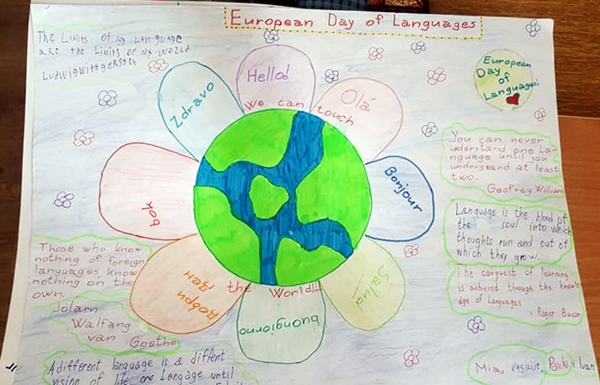 European Day of Languages
The Limits of my Language
are the Limits of my World.
Ludwig Wittgenstein
European
Day
of
Languages!
Zdravo
Hello!
Olá
Bonjour
Salut
buongiorno
Добри
Ден
bok
We can touch
the World!!!
You can never
understand one La-
nguage until you
understand at least
two.
Geofrey William
Language is the blood of
the soul into which
thoughts run and out of
which they grow.
The conquest of learning
is achieved through the knowle
dge of Languages
- Roger Bacon
Those who know
nothing of foreign
languages know
nothing on this
own.
Jolarn
Walfang
van Goethe
A different language is a diffent
vision of life one Langage until
Mia, Pavle i Ivan